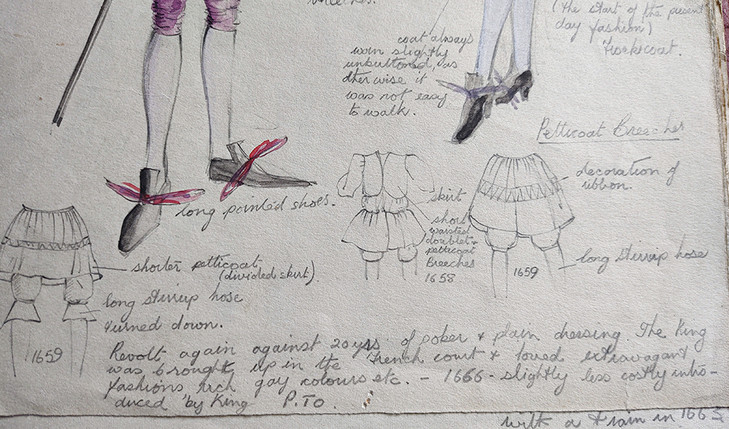 breeches.
(the start of the present
day fashion)
Frockcoat.
coat always
worn slightly
unbuttoned, as
otherwise it
was not easy
to walk.
Petticoat Breeches
decoration of
ribbon.
long pointed shoes.
skirt
short
waisted
doublet &
petticoat
Breeches
1658
1659
long stirrup hose
shorter petticoat
(divided skirt).
long stirrup hose
turned down.
1659
Revolt again against 20 yrs of poker & plain dressing. The King
was brought up in the French court & loved extravagant
fashions rich gay colours etc. – 1666 – slightly less costly intro-
duced by King P.T.O.
with a train in 1663